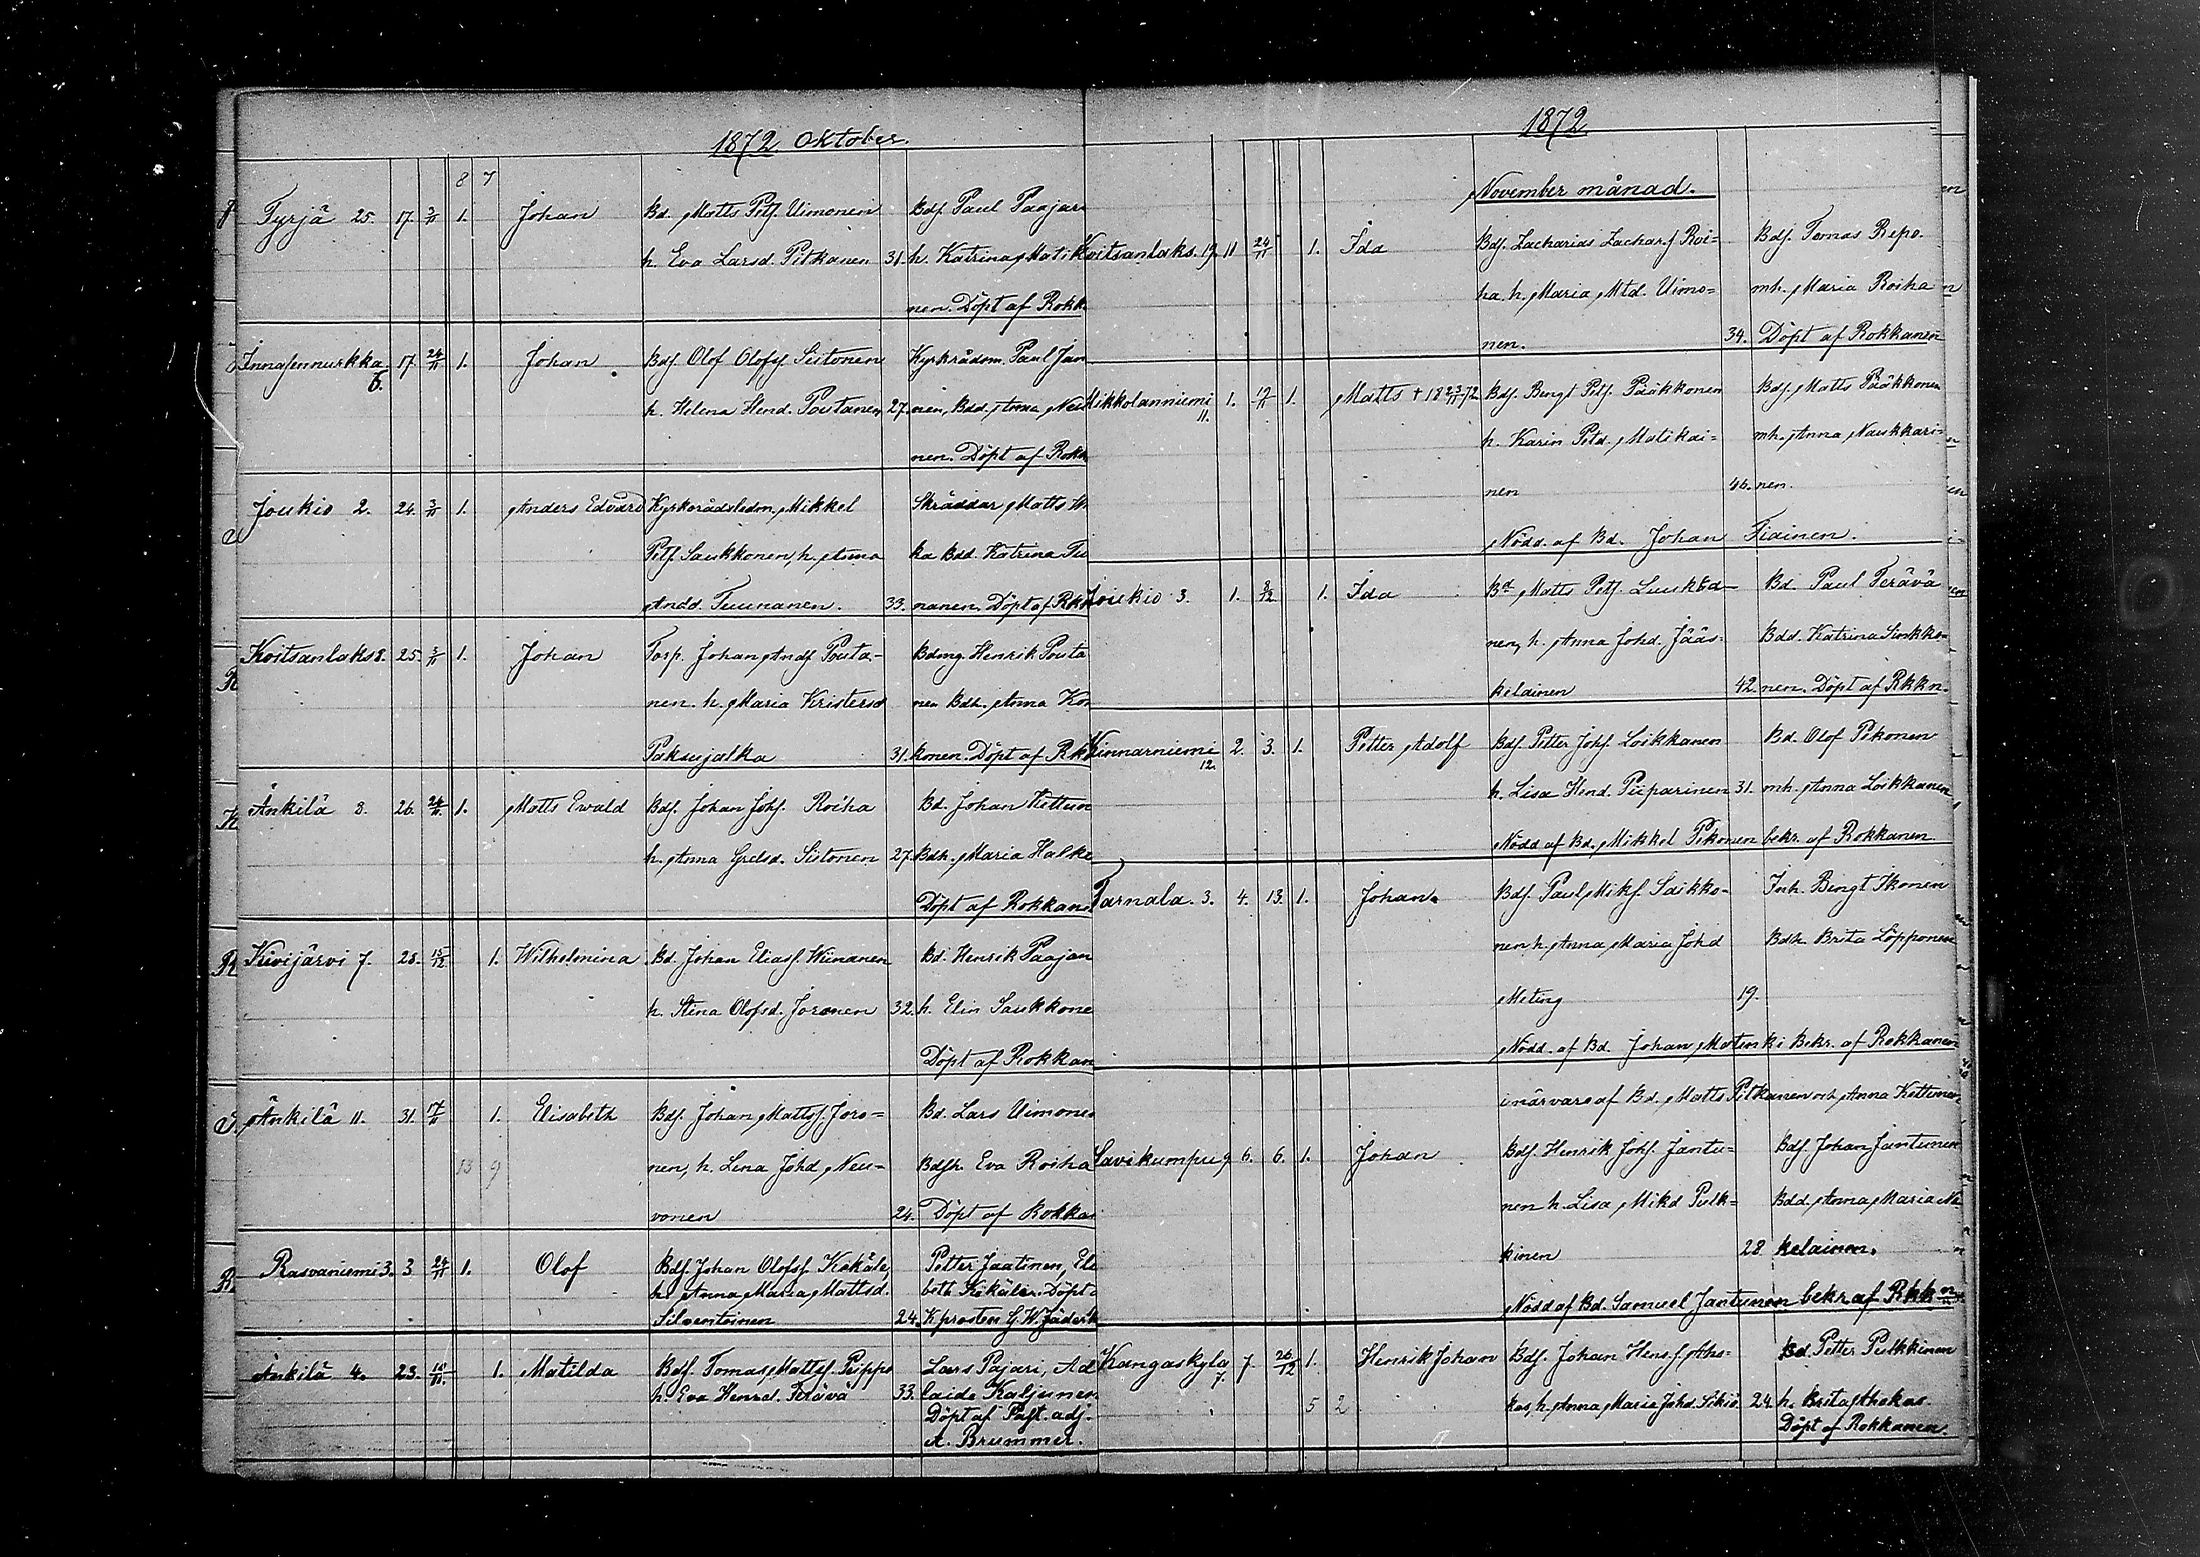 1872 Oktober.
8 7
Tyrjä 25. 17. 3/11 1. Johan Bd. Matts Petf. Uimonen Bdf. Paul Paajar
h. Eva Larsd. Pitkänen 31. h. Katrina Matik
nen. Döpt af Rokk
Innasennurkka 17. 24/11 1. Johan Bdf. Olof Oloff. Sistonen Kyrkrådsm. Paul Jan
6. h. Helena Hend. Poutanen 27. nen, Bdd. Anna Neu
nen. Döpt af Rokk
Joukio 2. 24. 3/11 1. Anders Edvard Kyrkorådsledm. Mikkel Skräddar Matts
Petf. Saukkonen, h. Anna ka Bdd. Katrina Tu
Andd. Tuunanen. 33. nanen. Döpt af Rkk
Koitsanlaks 8. 25. 3/11 1. Johan Torp. Johan Andf Pouta- Bdmg. Henrik Pouta
nen. h. Maria Kristersd nen Bdh. Anna Ko
Paksujalka 31. konen. Döpt af Rkk
Änkilä 8. 26. 24/11. 1. Matts Ewald Bdf. Johan Johf. Roiha Bd. Johan Kettun
h. Anna Grelsd. Sistonen 27. Bdh. Maria Halko
Döpt af Rokkan
Kivijärvi 7. 28. 15/12 1. Wilhelmina Bd. Johan Eliasf. Wänänen Bd. Henrik Paajan
h. Stina Olofsd. Joronen 32. h. Elin Saukkone
Döpt af Rokkan
Änkilä 11. 31. 17/11 1. Elisabeth Bdf. Johan Mattsf. Joro= Bd. Lars Uimone
13 9 nen, h. Lena Johd. Neu= Bdfh. Eva Roiha
vonen 24. Döpt af Rokka
Rasvaniemi 3. 3 24/11 1. Olof Bdf. Johan Olofsf. Kokäle, Petter Jaatinen, Eli
h. Anna Maria Mattsd. beth Kekäle. Döpt
Silventoinen 24. Kprosten G. W. Jäderh
Änkilä 4. 23. 10/11. 1. Matilda Bdf. Tomas Mattsf. Peippo Lars Pajari, Ad
h. Eva Henrd. Terävä 33. laide Kaljunen
Döpt af Past. adj.
A. Brummer.
1872
November månad.
Koitsanlaks. 19. 11 24/11 1. Ida Bdf. Zacharias Zacharf Roi= Bdf. Tomas Repo.
ha. h. Maria Mtd. Uimo= mh. Maria Roiha
nen. 34. Döpt af Rokkanen
Mikkolanniemi 1. 17/11 1. Matts † 18 23/11 72 Bdf. Bengt Petf. Pääkkönen Bdf. Matts Pääkkönen
11. h. Karin Petd. Matikai= mh. Anna Naukkari=
nen 44. nen.
Nödd. af Bd. Johan Tiainen.
Joukio 3. 1. 8/12 1. Ida Bd Matts Petf. Luukko- Bd. Paul Terävä
nen, h. Anna Johd. Jääs- Bdd. Katrina Suukko-
keläinen 42. nen. Döpt af Rkkn.
Kinnarniemi 2. 3. 1. Petter Adolf Bdf. Petter Johf. Loikkanen Bd. Olof Pekonen
12. h. Lisa Hend. Puparinen 31. mh. Anna Loikkanen
Nödd af Bd. Mikkel Pekonen bekr. af Rokkanen
Tarnala. 3. 4. 13. 1. Johan. Bdf. Paul Mikf. Saikko- Inh. Bengt Ikonen
nen h. Anna Maria Johd Bdh. Brita Löpponen
Meting 19.
Nödd. af Bd. Johan Motinki Bekr. af Rokkanen
i närvaro af Bd. Matts Pitkänen och Anna Kettunen
Savikumpu 9 6. 6. 1. Johan Bdf. Henrik Johf. Jantu- Bdf. Johan Jantunen
nen h. Lisa Mikd Pulk= Bdd. Anna Maria
kinen 28 kelainen.
Nödd af Bd. Samuel Jantunen bekr. af Rkk
Kangaskyla 7. 26/12 1. Henrik Johan Bdf. Johan Hensf. Aho= Bd. Petter Pulkkinen
7. 5 2 kas, h. Anna Maria Johd. Sikiö 24. h. Brita Ahokas.
Döpt af Rokkanen.